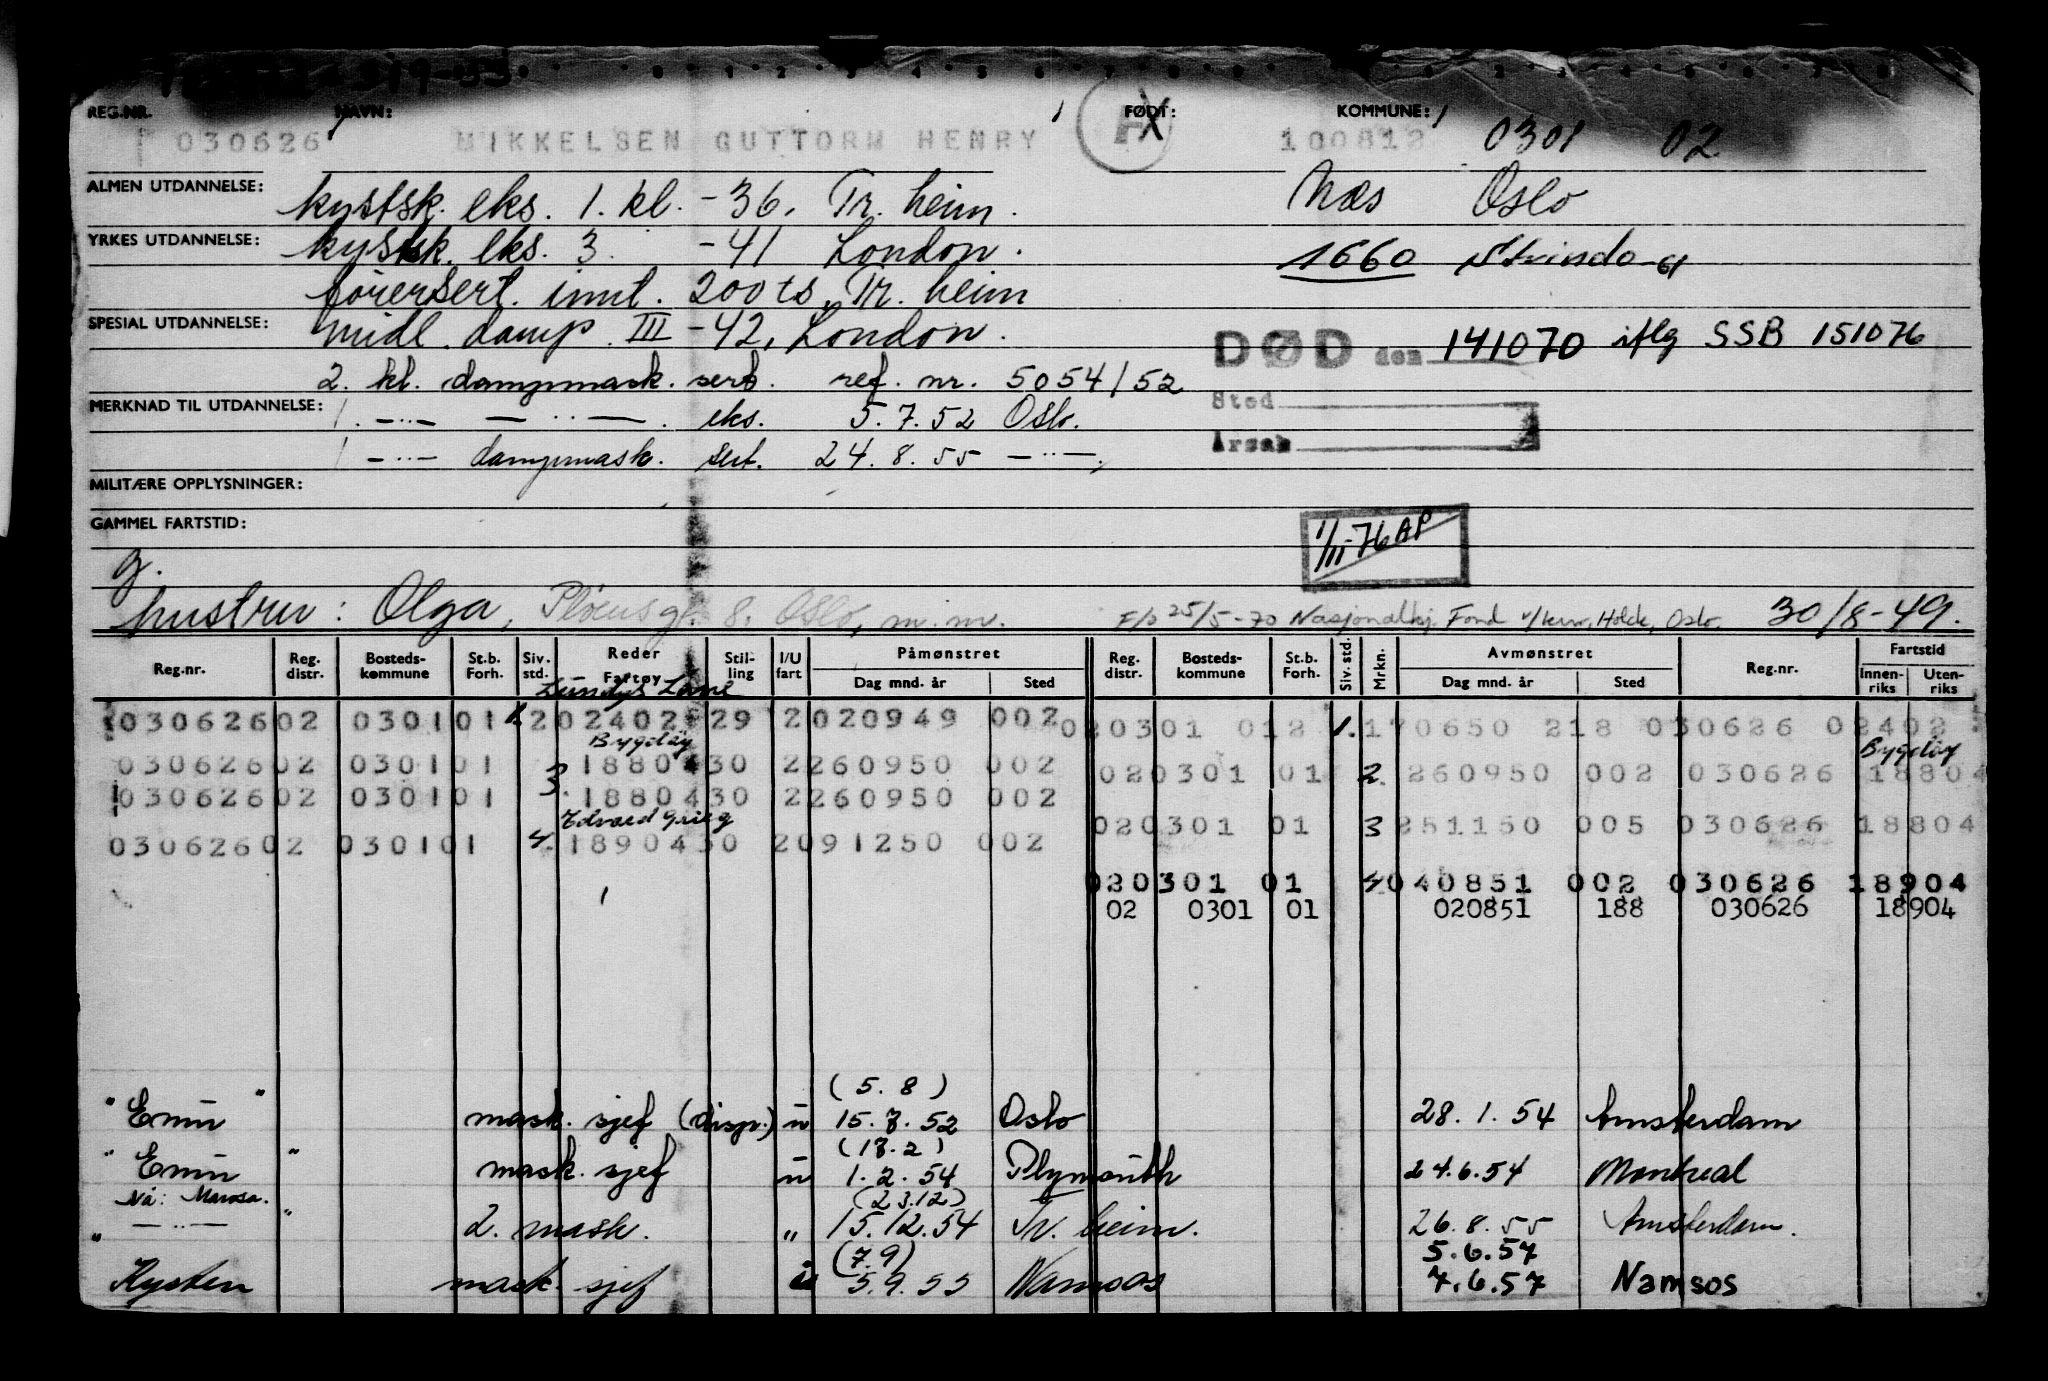 REG.NR. NAVN: FØDT: KOMMUNE:
030626 MIKKELSEN GUTTORM HENRY 100812 0301 02
ALMEN UTDANNELSE: kystsk. eks. 1. kl. -36, Tr. heim. Næs Oslo
YRKES UTDANNELSE: kystsk. eks. 3. -41 London. 1660 Strinda
førersert. innt. 200 ts, Tr. heim
SPESIAL UTDANNELSE: midl. damp. III -42, London. DØD den 141070 iflg SSB 151076
2. kl. dampmask. sert. ref. nr. 5054/52 Sted
MERKNAD TIL UTDANNELSE: 1. -..- - .. - . eks. 5.7.52 Oslo. Årsak
1 -..- dampmask. sert. 24.8.55 -..-.
MILITÆRE OPPLYSNINGER:
GAMMEL FARTSTID: 1/11-76 AP
g.
hustru: Olga, Pløensgt. 8. Oslo, m.m. F/b 25/5-70 Nasjonalhj. Fond v/kur. Holck, Oslo. 30/8-49.
Reg.nr. Reg. distr. Bosteds- kommune St.b. Forh. Siv. std. Reder Fartøy Stil- ling I/U fart Påmønstret Dag mnd. år Sted Reg. distr. Bosteds- kommune St.b. Forh. Siv. std. Mrkn. Avmønstret Dag mnd. år Sted Reg.nr. Fartstid Innen- riks Uten- riks
Lundys Lane
030626 02 0301 01 1. 2 02402 29 2 020949 002 02 0301 01 2 1. 170650 218 030626 02402
Bygdøy Bygdøy
030626 02 0301 01 18804 30 2 260950 002 02 0301 01 2. 260950 002 030626 18804
030626 02 0301 01 3. 18804 30 2 260950 002
Edvard Grieg
02 0301 01 3 251150 005 030626 18804
030626 02 0301 01 4. 18904 30 2 091250 002
02 0301 01 4 040851 002 030626 18904
02 0301 01 020851 188 030626 18904
(5.8)
"Emin" mask. sjef (disp.) u 15.7.52 Oslo 28.1.54 Amsterdam
(17.2)
"Emin" mask. sjef u 1.2.54 Plymouth 24.6.54 Montreal
Nå: Marosa. (23.12)
" -..- " 2. mask. " 15.12.54 Tr. heim. 26.8.55 Amsterdam.
(7.9) 5.6.57
Kysten mask. sjef i 5.9.55 Namsos 7.6.57 Namsos